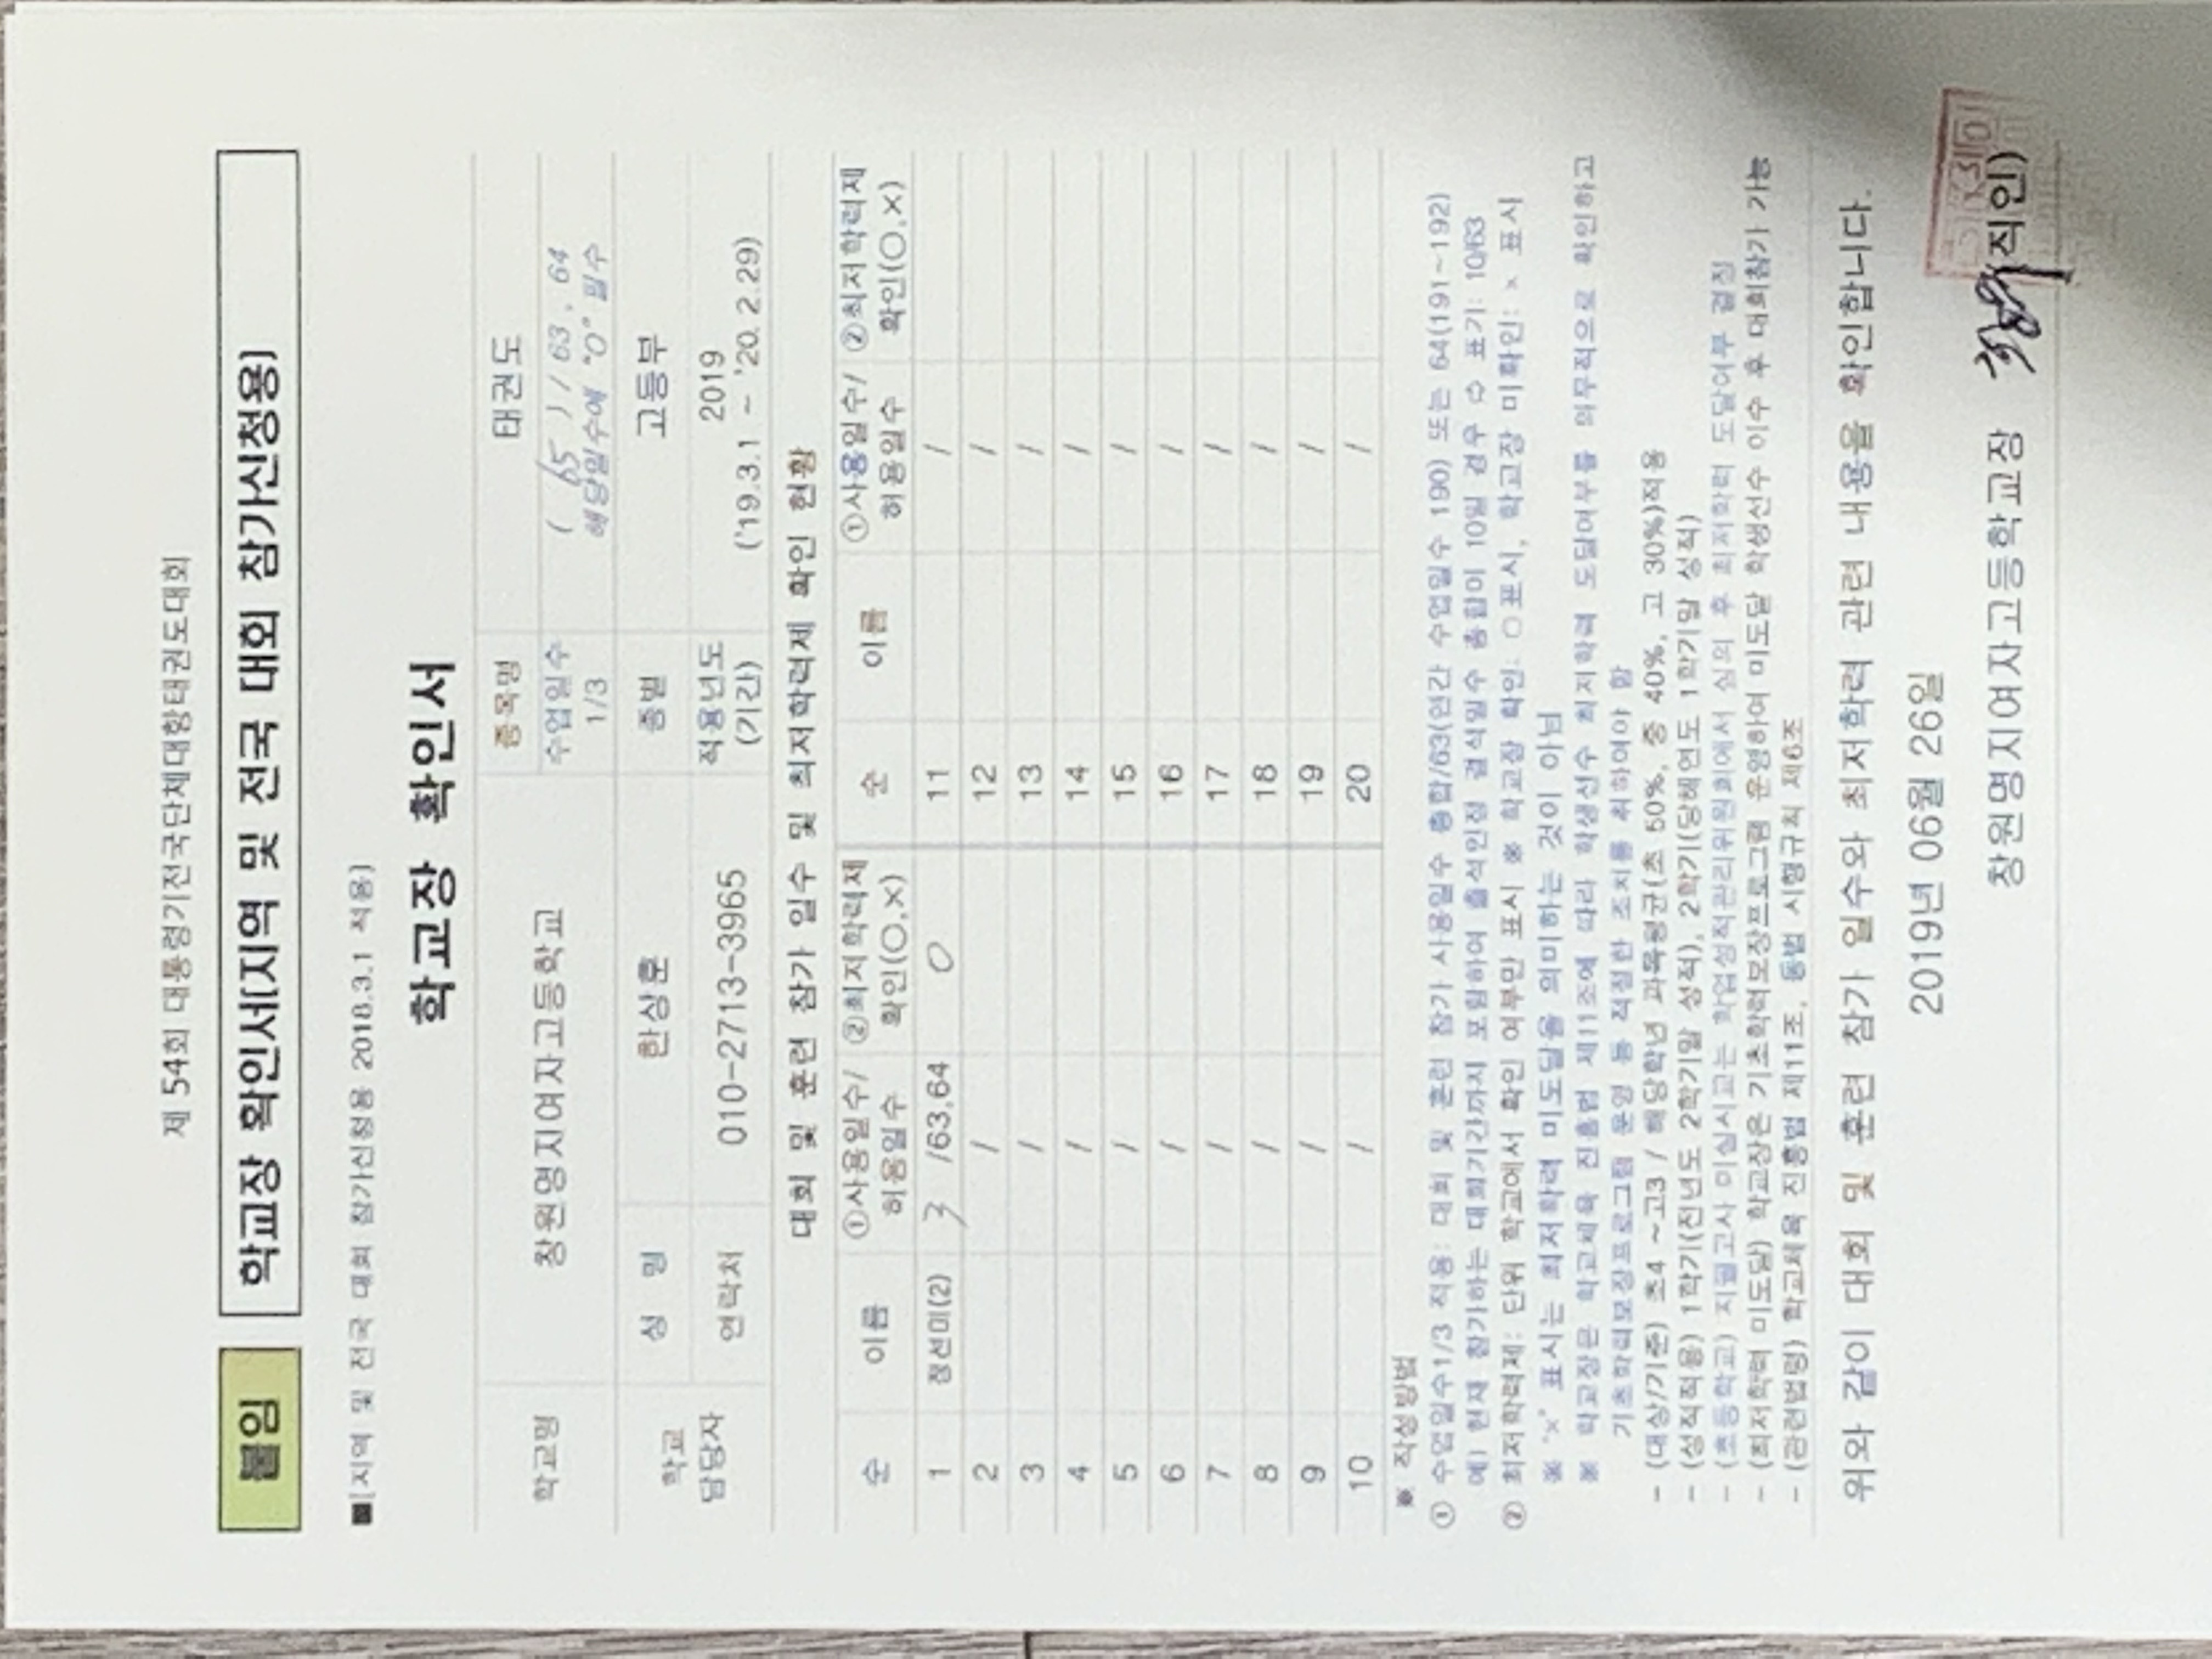 제 54회 대통령기전국단체대항태권도대회
붙임 학교장 확인서(지역 및 전국 대회 참가신청용)
■[지역 및 전국 대회 참가신청용 2018.3.1 적용]
학교장 확인서
학교명 창원명지여자고등학교 종목명 태권도
수업일수 1/3 ( 65 ) / 63, 64
해당일수에 "O" 필수
학교 담당자 성 명 한상훈 종별 고등부
연락처 010-2713-3965 적용년도 (기간) 2019
('19.3.1 ~ '20.2.29)
대회 및 훈련 참가 일수 및 최저학력제 확인 현황
순 이름 ①사용일수/허용일수 ②최저학력제 확인(O,×) 순 이름 ①사용일수/허용일수 ②최저학력제 확인(O,×)
1 정선미(2) 3 /63,64 O 11 /
2 / 12 /
3 / 13 /
4 / 14 /
5 / 15 /
6 / 16 /
7 / 17 /
8 / 18 /
9 / 19 /
10 / 20 /
※ 작성방법
① 수업일수1/3 적용: 대회 및 훈련 참가 사용일수 총합/63(연간 수업일수 190) 또는 64(191~192)
예) 현재 참가하는 대회기간까지 포함하여 출석인정 결석일수 총합이 10일 경우 ⇨ 표기: 10/63
② 최저학력제: 단위 학교에서 확인 여부만 표시 ※ 학교장 확인: ○표시, 학교장 미확인: × 표시
※ "×" 표시는 최저학력 미도달을 의미하는 것이 아님
※ 학교장은 학교체육 진흥법 제11조에 따라 학생선수 최저학력 도달여부를 의무적으로 확인하고
기초학력보장프로그램 운영 등 적절한 조치를 취하여야 함
- (대상/기준) 초4 ~고3 / 해당학년 과목평균(초 50%, 중 40%, 고 30%)적용
- (성적적용) 1학기(전년도 2학기말 성적), 2학기(당해연도 1학기말 성적)
- (초등학교) 지필고사 미실시교는 학업성적관리위원회에서 심의 후 최저학력 도달여부 결정
- (최저학력 미도달) 학교장은 기초학력보장프로그램 운영하여 미도달 학생선수 이수 후 대회참가 가능
- (관련법령) 학교체육 진흥법 제11조, 동법 시행규칙 제6조
위와 같이 대회 및 훈련 참가 일수와 최저학력 관련 내용을 확인합니다.
2019년 06월 26일
창원명지여자고등학교장 (직인)